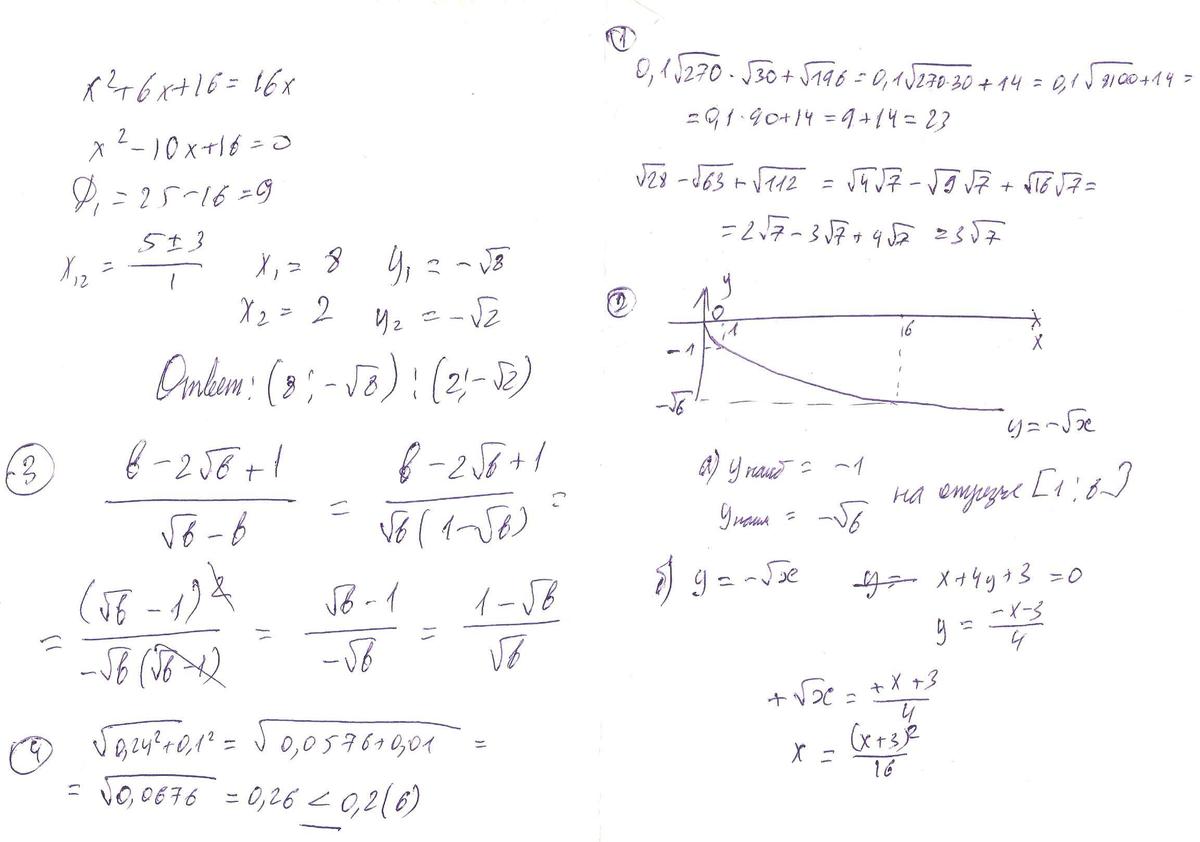 x²+6x+16=16x
x²-10x+16=0
D₁=25-16=9
x₁₂ = (5±3)/1 x₁= 8 y₁ = -√8
x₂ = 2 y₂ = -√2
Ответ: (8;-√8); (2;-√2)
3 (b-2√b+1)/(√b-b) = (b-2√b+1)/(√b(1-√b)) =
= (√b-1)²/(-√b(√b-1)) = (√b-1)/(-√b) = (1-√b)/√b
4 √(0,24²+0,1²) = √(0,0576+0,01) =
= √0,0676 = 0,26 < 0,2(6)
1
0,1√270·√30+√196=0,1√(270·30)+14=0,1√8100+14=
=0,1·90+14=9+14=23
√28-√63+√112 = √4√7-√9√7+√16√7=
=2√7-3√7+4√7=3√7
2
y
1 0
1 6 x
-1
-√6
y=-√x
а) y наиб = -1
y наим = -√6 на отрезке [1;6]
б) y=-√x y= x+4y+3=0
y = (-x-3)/4
+√x = (+x+3)/4
x = (x+3)²/16